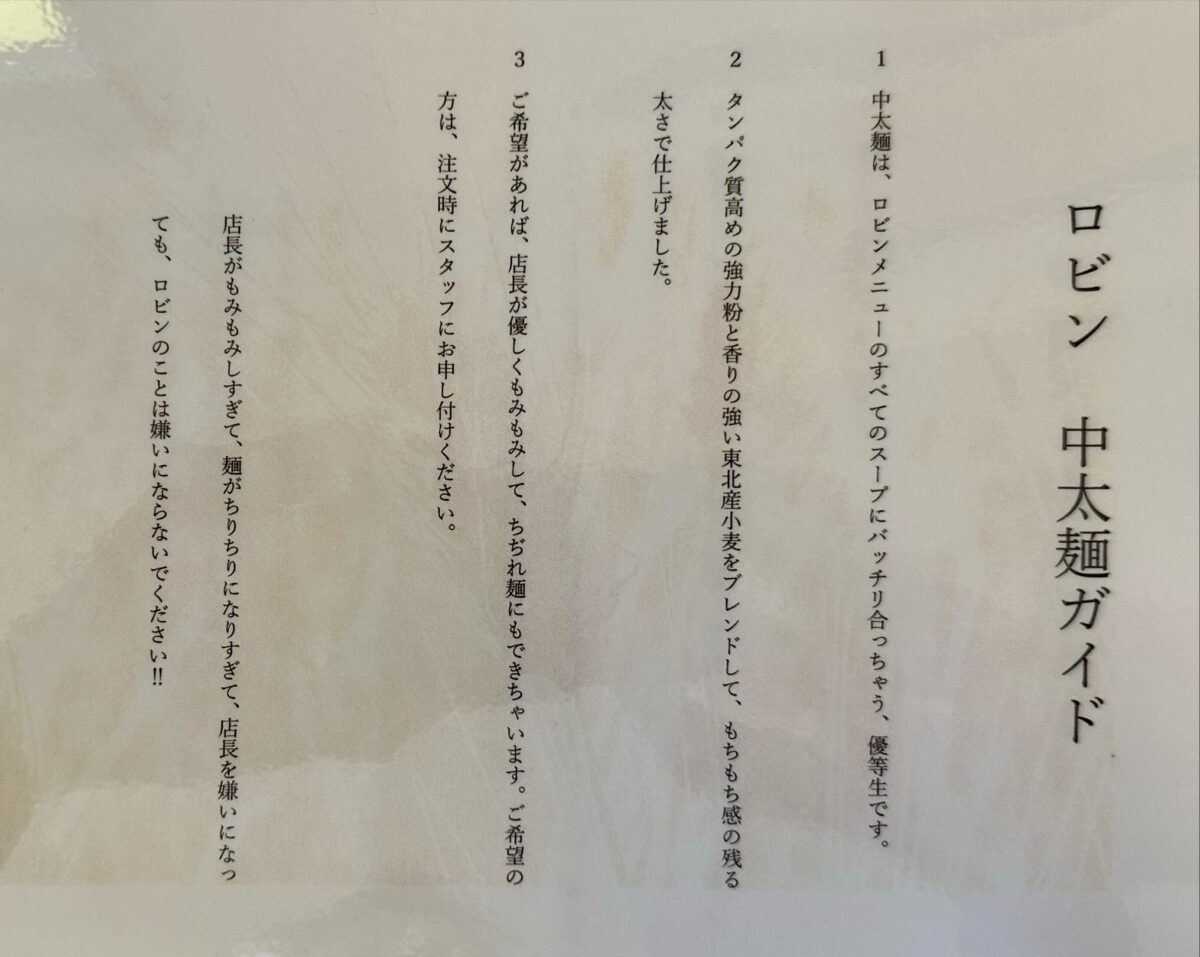 ロビン　中太麺ガイド
1　中太麺は、ロビンメニューのすべてのスープにバッチリ合っちゃう、優等生です。
2　タンパク質高めの強力粉と香りの強い東北産小麦をブレンドして、もちもち感の残る
太さで仕上げました。
3　ご希望があれば、店長が優しくもみもみして、ちぢれ麺にもできちゃいます。ご希望の
方は、注文時にスタッフにお申し付けください。
店長がもみもみしすぎて、麺がちりちりになりすぎて、店長を嫌いになっ
ても、ロビンのことは嫌いにならないでください!!